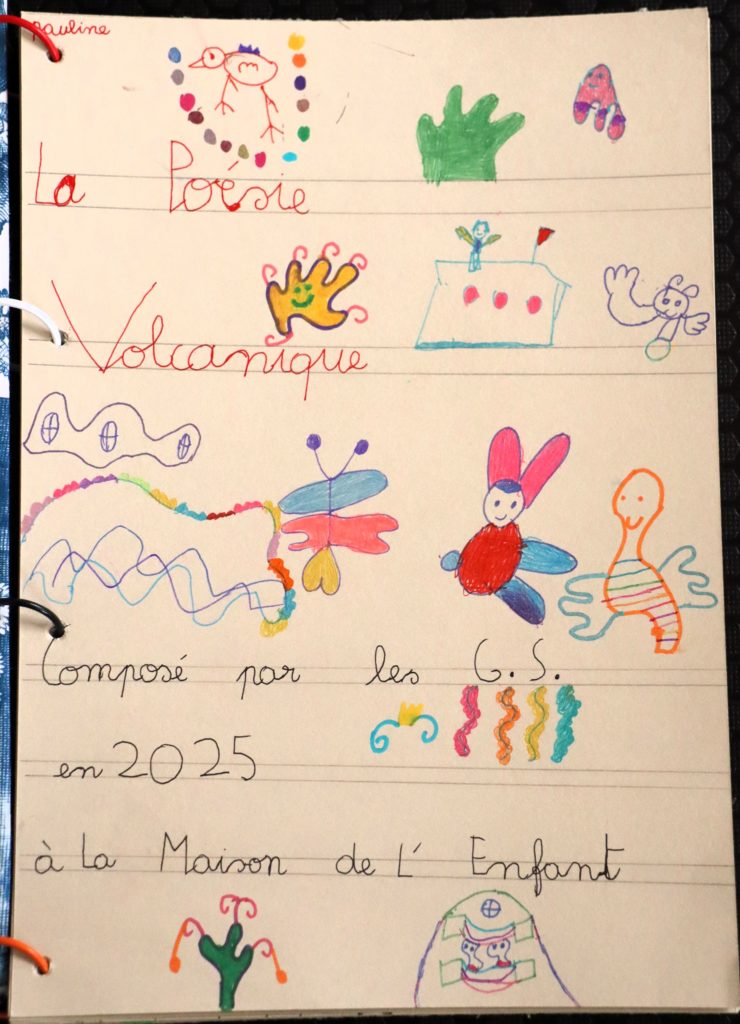 pauline
La Poésie
Volcanique
Composé par les G.S.
en 2025
à La Maison de L' Enfant